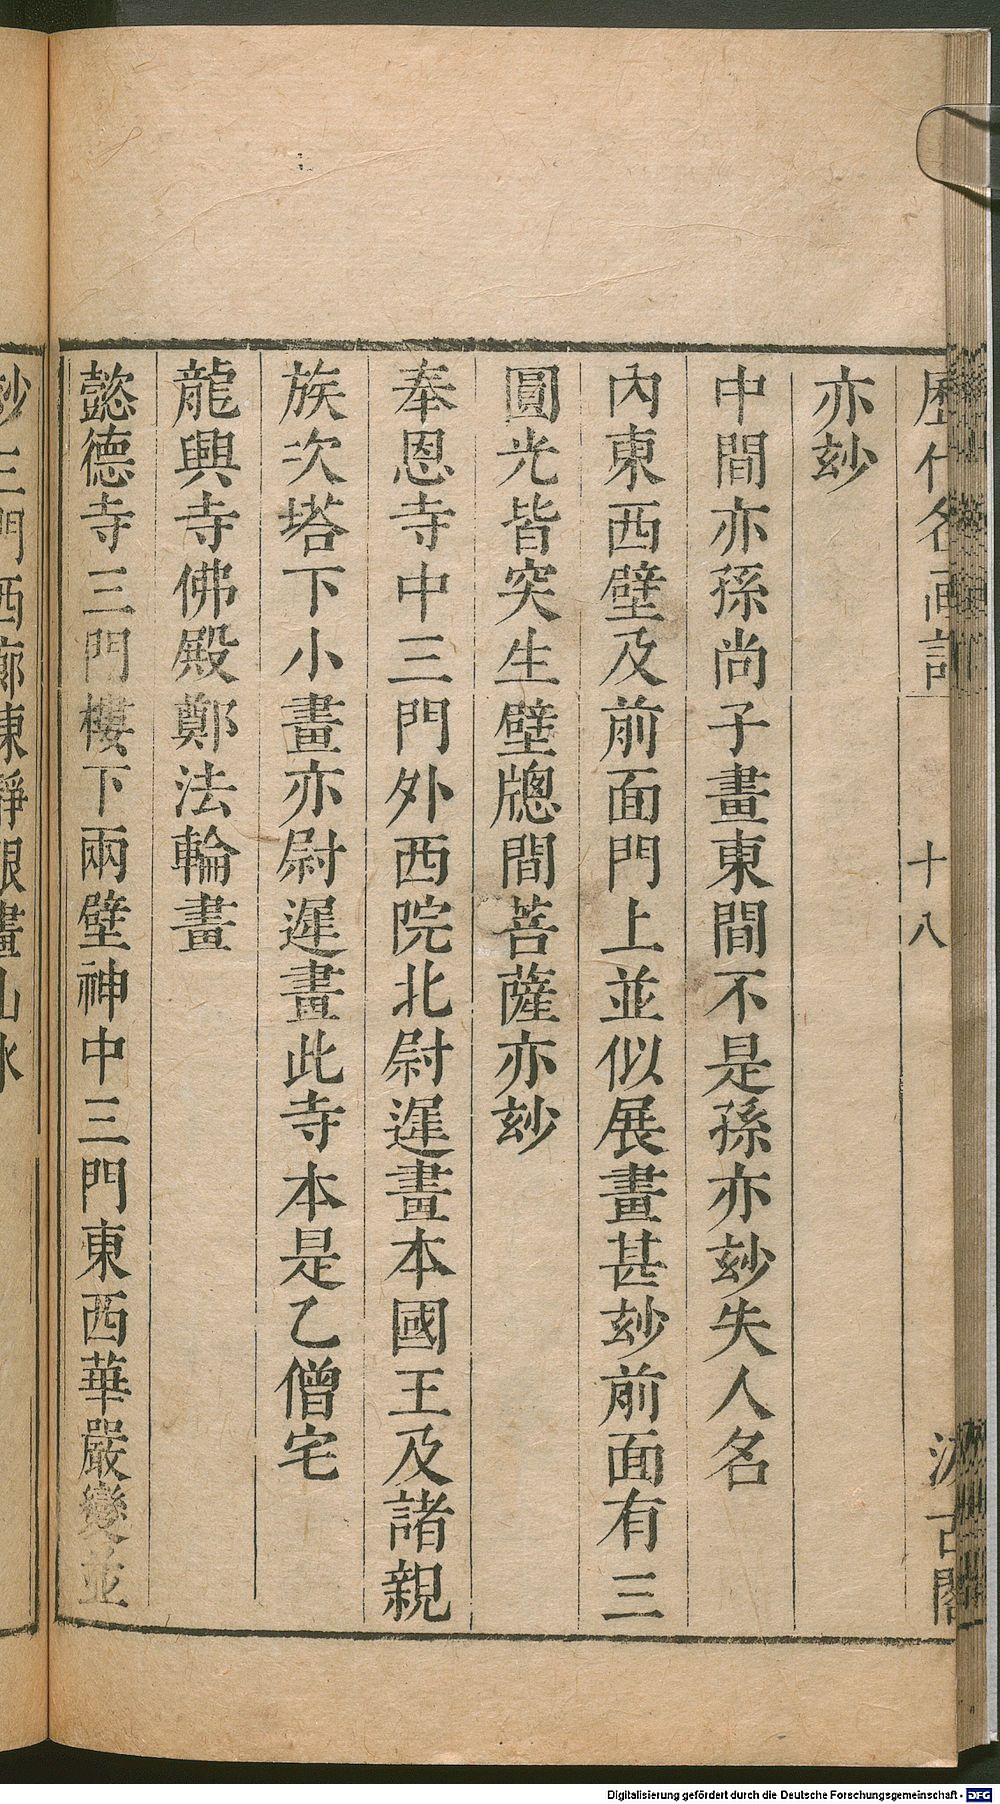 歷代名画記
十八
汲古閣
亦玅
中間亦孫尚子畫東間不是孫亦玅失人名
內東西壁及前面門上並似展畫甚玅前面有三
圓光皆突生壁牕間菩薩亦玅
奉恩寺中三門外西院北尉遲畫本國王及諸親
族次塔下小畫亦尉遲畫此寺本是乙僧宅
龍興寺佛殿鄭法輪畫
懿德寺三門樓下兩壁神中三門東西華嚴變並
玅三門西廊東靜眼畫山水
Digitalisierung gefördert durch die Deutsche Forschungsgemeinschaft - DFG